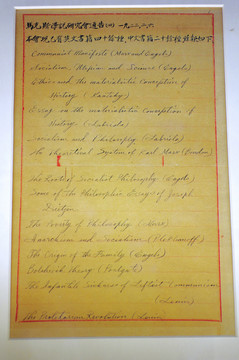 馬克斯學說研究會通告(四) 一九二二,二,六
本會現已有英文書籍四十餘種,中文書籍二十餘種茲錄如下
Communist Manifesto (Marx and Engels)
Socialism, Utopian and Science (Engels)
Ethics and the materialistic Conception of
History (Kautsky)
Essay on the materialistic Conception of
History (Labriola)
Socialism and Philosophy (Labriola)
The Theoretical System of Karl Marx (Boudin)
The Roots of Socialist Philosophy (Engels)
Some of the Philosophic Essays of Joseph
Dietzgen
The Poverty of Philosophy (Marx)
Anarchism and Socialism (Plekhanoff)
The Origin of the Family (Engels)
Bolshevik Theory (Postgate)
The Infantile Sickness of Leftist Communism
(Lenin)
The Proletarian Revolution (Lenin